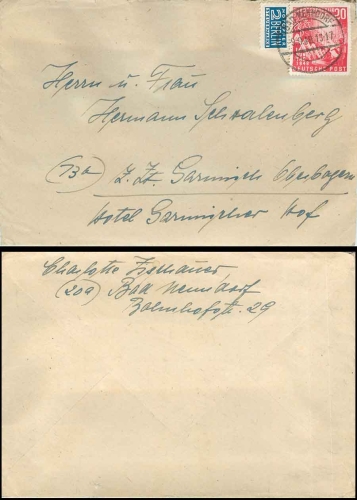 NOTOPFER
2 BERLIN
STEUERMARKE
20
DEUTSCHE POST
Herrn u. Frau
Hermann Schwalenberg
(13a) z. Zt. Garmisch Oberbayern
Hotel Garmischer Hof
Charlotte
(20a) Bad Nenndorf
Bahnhofstr. 29